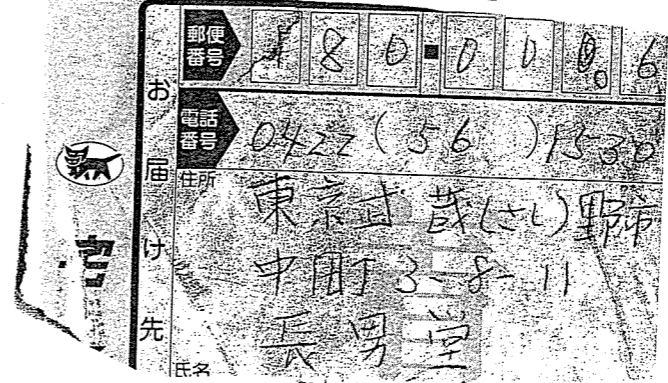 郵便番号 180-0006
電話番号 0422(56)1530
お届け先
住所
東京武蔵(さし)野市
中町3-8-11
長男堂
氏名
宅